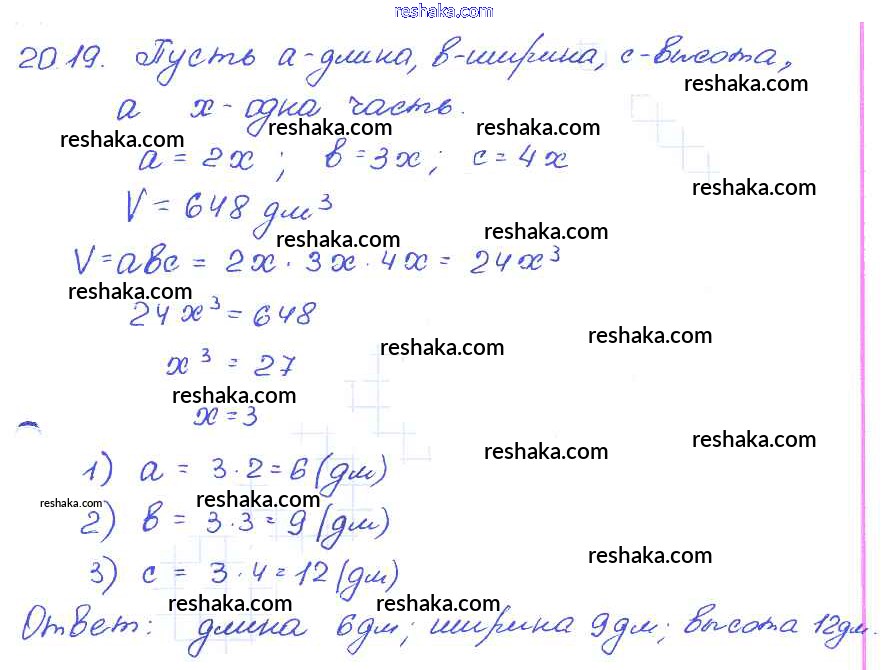 reshaka.com
20.19. Пусть a-длина, в-ширина, c-высота,
reshaka.com
а x-одна часть.
reshaka.com reshaka.com
reshaka.com
a = 2x ; в = 3x ; c = 4x
reshaka.com
V = 648 дм³
reshaka.com reshaka.com
V = aвc = 2x · 3x · 4x = 24x³
reshaka.com
24x³ = 648
reshaka.com reshaka.com
x³ = 27
reshaka.com
x = 3
reshaka.com reshaka.com
1) a = 3 · 2 = 6 (дм)
reshaka.com reshaka.com
2) в = 3 · 3 = 9 (дм)
reshaka.com
3) c = 3 · 4 = 12 (дм)
reshaka.com reshaka.com
Ответ: длина 6дм; ширина 9дм; высота 12дм.